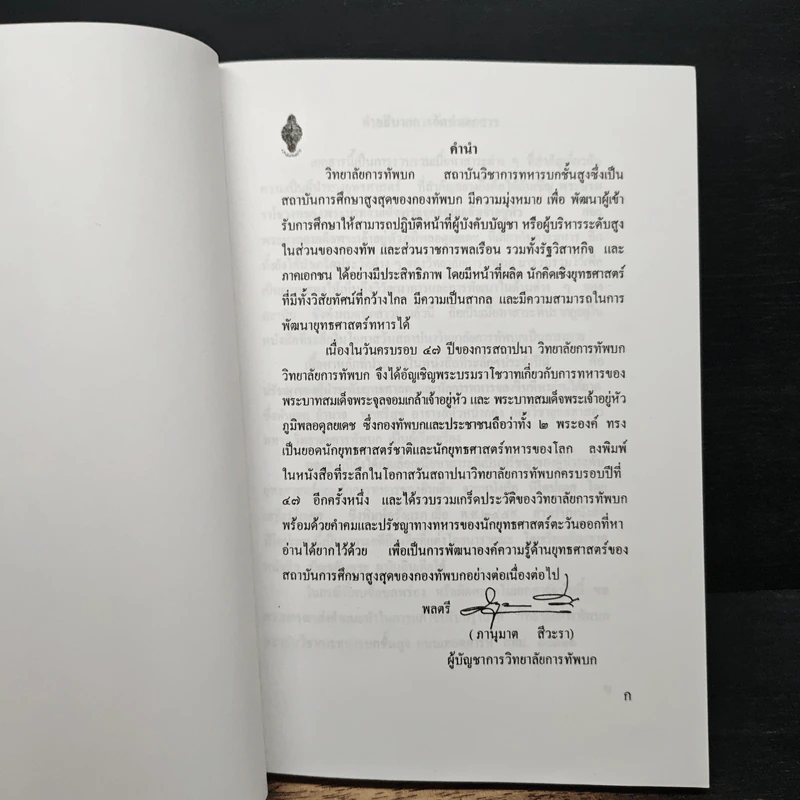 คำนำ
วิทยาลัยการทัพบก สถาบันวิชาการทหารบกชั้นสูงซึ่งเป็น
สถาบันการศึกษาสูงสุดของกองทัพบก มีความมุ่งหมาย เพื่อ พัฒนาผู้เข้า
รับการศึกษาให้สามารถปฏิบัติหน้าที่ผู้บังคับบัญชา หรือผู้บริหารระดับสูง
ในส่วนของกองทัพ และส่วนราชการพลเรือน รวมทั้งรัฐวิสาหกิจ และ
ภาคเอกชน ได้อย่างมีประสิทธิภาพ โดยมีหน้าที่ผลิต นักคิดเชิงยุทธศาสตร์
ที่มีทั้งวิสัยทัศน์ที่กว้างไกล มีความเป็นสากล และมีความสามารถในการ
พัฒนายุทธศาสตร์ทหารได้
เนื่องในวันครบรอบ ๔๗ ปีของการสถาปนา วิทยาลัยการทัพบก
วิทยาลัยการทัพบก จึงได้อัญเชิญพระบรมราโชวาทเกี่ยวกับการทหารของ
พระบาทสมเด็จพระจุลจอมเกล้าเจ้าอยู่หัว และ พระบาทสมเด็จพระเจ้าอยู่หัว
ภูมิพลอดุลยเดช ซึ่งกองทัพบกและประชาชนถือว่าทั้ง ๒ พระองค์ ทรง
เป็นยอดนักยุทธศาสตร์ชาติและนักยุทธศาสตร์ทหารของโลก ลงพิมพ์
ในหนังสือที่ระลึกในโอกาสวันสถาปนาวิทยาลัยการทัพบกครบรอบปีที่
๔๗ อีกครั้งหนึ่ง และได้รวบรวมเกร็ดประวัติของวิทยาลัยการทัพบก
พร้อมด้วยคำคมและปรัชญาทางทหารของนักยุทธศาสตร์ตะวันออกที่หา
อ่านได้ยากไว้ด้วย เพื่อเป็นการพัฒนาองค์ความรู้ด้านยุทธศาสตร์ของ
สถาบันการศึกษาสูงสุดของกองทัพบกอย่างต่อเนื่องต่อไป
พลตรี
( ภานุมาต สีวะรา)
ผู้บัญชาการวิทยาลัยการทัพบก
ก